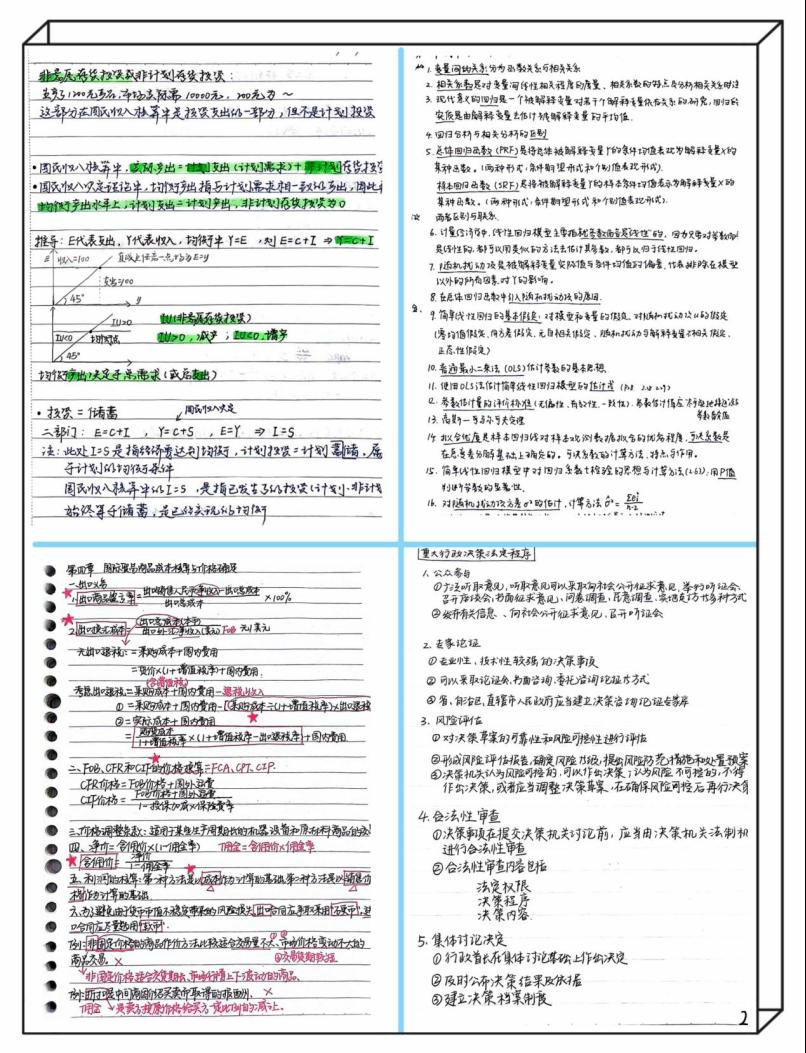 非意愿存货投资或非计划存货投资：
这部分在国民收入核算中是投资支出的一部分，但不是计划投资
·国民收入核算中，实际产出=计划支出(计划需求)+非计划存货投资
·国民收入决定理论中，均衡产出指与计划需求相一致的产出，因此
均衡产出水平上，计划支出=计划产出，非计划存货投资为0
推导：E代表支出，Y代表收入，均衡中 Y=E ，则E=C+I ⇒ Y=C+I
E 收入=100 直线上任意一点均为E=y
支出=100
45° y
IU>0 IU(非意愿存货投资)
IU<0 均衡点 IU>0，减产；IU<0，增产
45°
均衡产出决定于总需求(或总支出)
·投资=储蓄 国民收入决定
二部门：E=C+I ，Y=C+S ，E=Y ⇒ I=S
注：此处I=S是指经济要达到均衡，计划投资=计划储蓄。属
于计划的均衡条件
国民收入核算中的I=S ，是指已发生了的投资(计划、非计划
始终等于储蓄，是已经实现的均衡
1.变量间的关系分为函数关系与相关关系
2.相关系数是对变量间线性相关程度的度量、相关系数的特点及分析相关关系时注
3.现代意义的回归是一个被解释变量对若干个解释变量依存关系的研究，回归的
实质是由解释变量去估计被解释变量的平均值.
4.回归分析与相关分析的区别
5.总体回归函数(PRF)是将总体被解释变量Y的条件均值表现为解释变量X的
某种函数。(两种形式：条件期望形式和个别值表现形式).
样本回归函数(SRF)是将被解释变量Y的样本条件均值表示为解释变量X的
某种函数。(两种形式：条件期望形式和个别值表现形式).
两者区别与联系.
6.计量经济学中，线性回归模型主要指就参数而言是线性的，因为只要对参数而言
是线性的，都可以用类似的方法去估计其参数，都可以归于线性回归。
7.随机扰动项是被解释变量实际值与条件均值的偏差，代表排除在模型
以外的所有因素对Y的影响。
8.在总体回归函数中引入随机扰动项的原因.
9.简单线性回归的基本假定：对模型和变量的假定、对随机扰动项u的假定
(零均值假定、同方差假定、无自相关假定、随机扰动与解释变量不相关假定、
正态性假定)
10.普通最小二乘法(OLS)估计参数的基本思想.
11.使用OLS法估计简单线性回归模型的估计式
12.参数估计量的评价标准(无偏性、有效性、一致性).
13.高斯—马尔可夫定理
14.拟合优度是样本回归线对样本观测数据拟合的优劣程度，可决系数是
在总变差分解基础上确定的。可决系数的计算方法、特点与作用。
15.简单线性回归模型中对回归系数t检验的思想与计算方法(2.63)：用P值
判断参数的显著性.
16.对随机扰动项方差σ²的估计，计算方法 σ̂²=Σei²/n-2
第四章 国际贸易商品成本核算与价格确定
一、出口业务
1.出口商品盈亏率=出口销售人民币净收入-出口总成本/出口总成本×100%
2.出口换汇成本=出口总成本(本币)/出口外汇净收入(美元) FOB 元/美元
无出口退税：=采购成本+国内费用
=货价×(1+增值税率)+国内费用.
(含增值税)
考虑出口退税=采购成本+国内费用-退税收入
①=采购成本+国内费用-[采购成本÷(1+增值税率)×出口退税
②=实际成本+国内费用
=采购成本/1+增值税率×(1+增值税率-出口退税率)+国内费用
二、FOB、CFR和CIF的价格换算=FCA、CPT、CIP.
CFR价格=FOB价格+国外运费
CIF价格=FOB价格+国外运费/1-投保加成×保险费率
三、价格调整条款：适用于某些生产周期长的机器设备和原材料商品的
四、净价=含佣价×(1-佣金率) 佣金=含佣价×佣金率
含佣价=净价/1-佣金率
五、利润的核算：第一种方法是以成本作为计算的基础，第二种方法是以销售价
格作为计算的基础.
六、为了避免由于货币币值不稳定带来的风险损失，出口合同应争取采用“硬币”，进
口合同应尽量选用“软币”.
例：非固定价格的商品作价方法比较适合交易量不大、市场价格变动不大的
商品交易。× ②交易货期较短
非固定价格适合交货期长、市场行情上下波动的商品。
例：折扣是中间商因介绍买卖而取得的报酬. ×
佣金 是卖方按原价格给买方一定比例的减让。
重大行政决策法定程序
1.公众参与
①广泛听取意见，听取意见可以采取向社会公开征求意见、举行听证会、
召开座谈会、书面征求意见、问卷调查、民意调查、实地走访等多种方式
②公布有关信息、向社会公开征求意见，召开听证会
2.专家论证
①专业性、技术性较强的决策事项
②可以采取论证会、书面咨询、委托咨询论证等方式
③省、自治区、直辖市人民政府应当建立决策咨询论证专家库
3.风险评估
①对决策草案的可靠性和风险可控性进行评估
②形成风险评估报告，确定风险等级，提出风险防范措施和处置预案
③决策机关认为风险可控的，可以作出决策；认为风险不可控的，不得
作出决策，或者应当调整决策草案，在确保风险可控后再行决策
4.合法性审查
①决策事项在提交决策机关讨论前，应当由决策机关法制机
进行合法性审查
②合法性审查内容包括
法定权限
决策程序
决策内容.
5.集体讨论决定
①行政首长在集体讨论基础上作出决定
②及时公布决策结果及依据
③建立决策档案制度
2